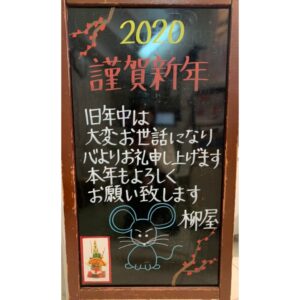 2020
謹賀新年
旧年中は
大変お世話になり
心よりお礼申し上げます
本年もよろしく
お願い致します
柳屋